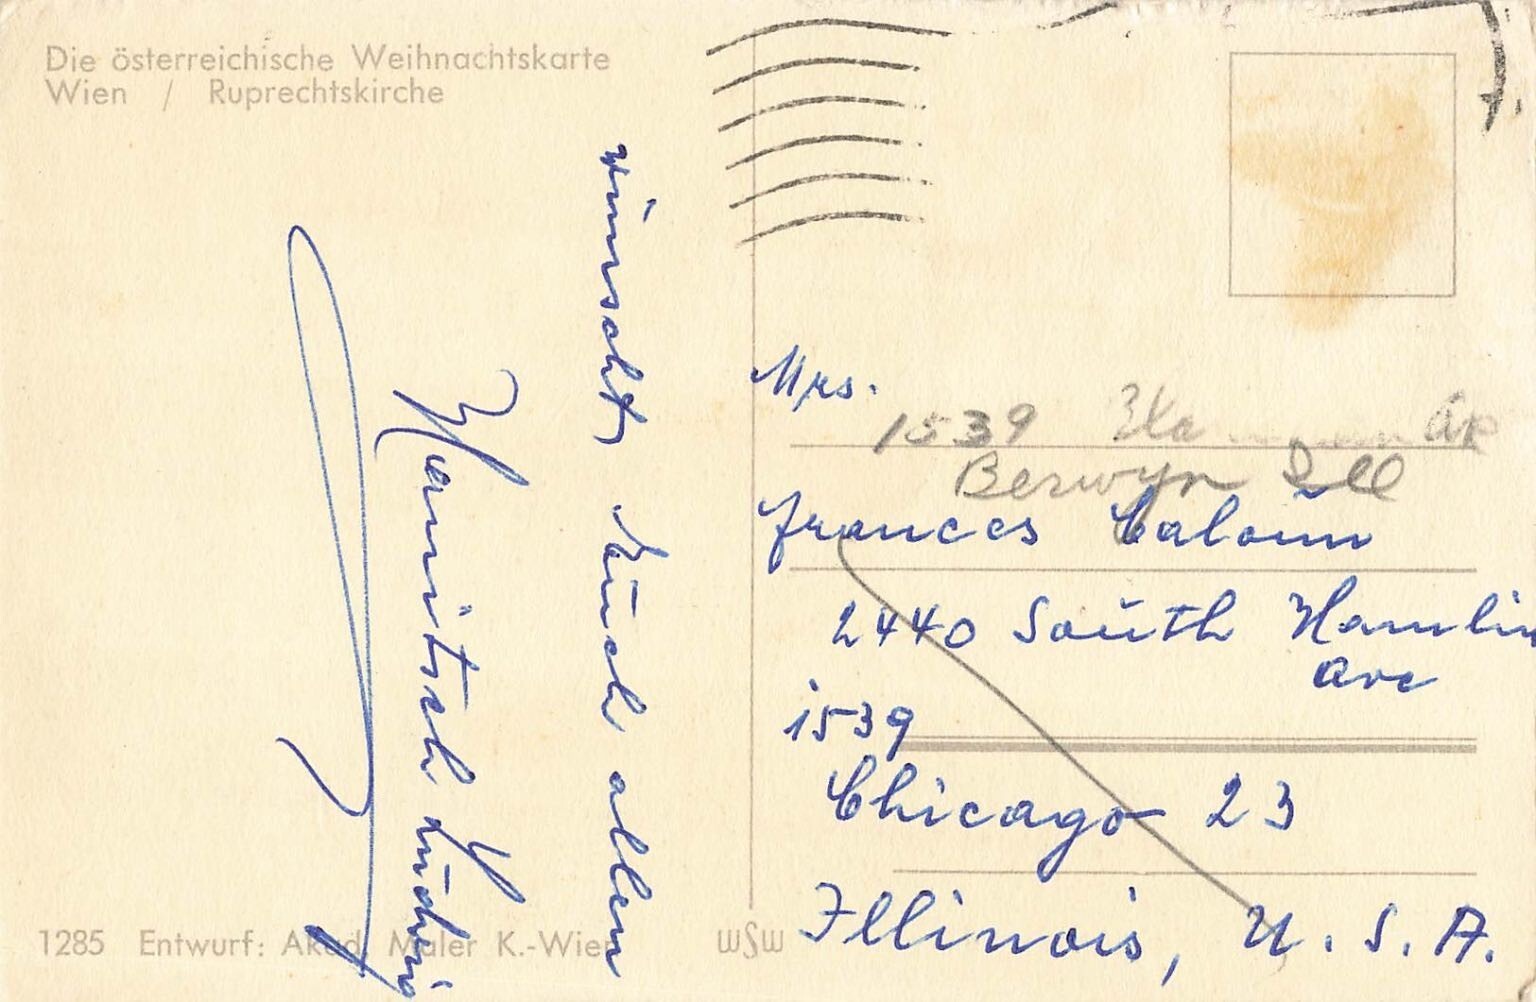 Die österreichische Weihnachtskarte
Wien / Ruprechtskirche
wünscht Euch allen
Hanitsch Ludwig
Mrs.
1539 Ha Av
Berwyn Ill
Frances
2440 South Hamlin
Ave
1539
Chicago 23
Illinois, U.S.A.
1285 Entwurf: Akad. Maler K.-Wien
WSW